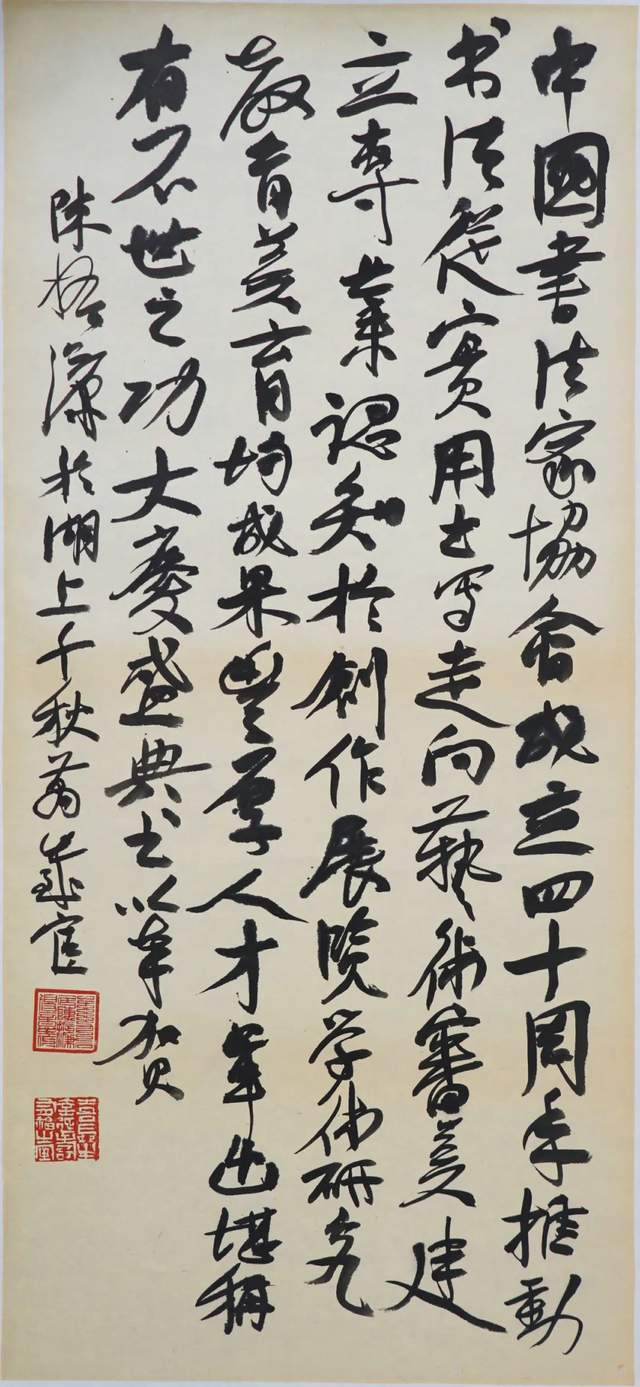 中國書法家協會成立四十周年推動
书法從實用书写走向藝術審美建
立專業認知於創作展覽学術研究
教育美育均成果豐厚人才辈出堪稱
有不世之功大慶盛典书以奉贺
陳振濂於湖上千秋萬歲宦